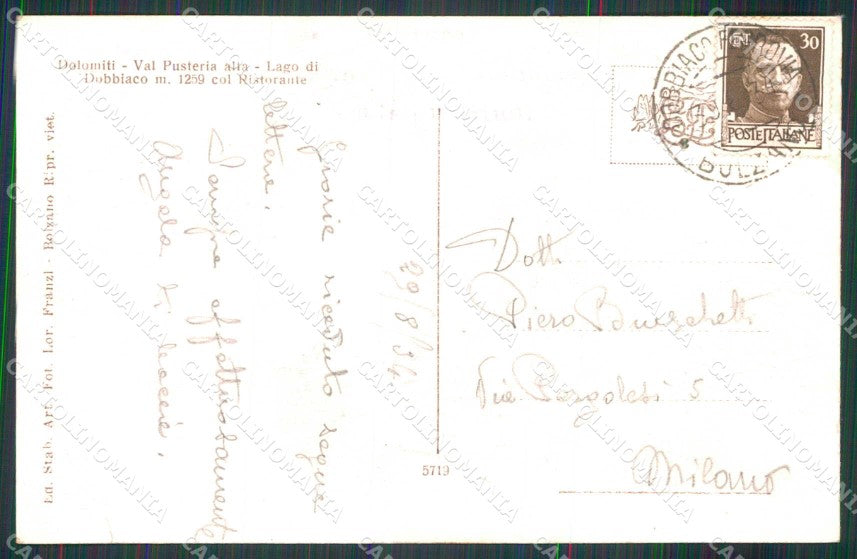 Dolomiti - Val Pusteria alta - Lago di
Dobbiaco m. 1259 col Ristorante
Grazie ricevuto
lettera.
Sempre affettuosamente
Angela
29/8/34
Ed. Stab. Art. Fot. Lor. Franzl - Bolzano Ripr. viet.
5719
CENT 30
POSTE ITALIANE
DOBBIACO
BOLZANO
Dott.
Piero
Via Pergolesi 5
Milano
CARTOLINOMANIA